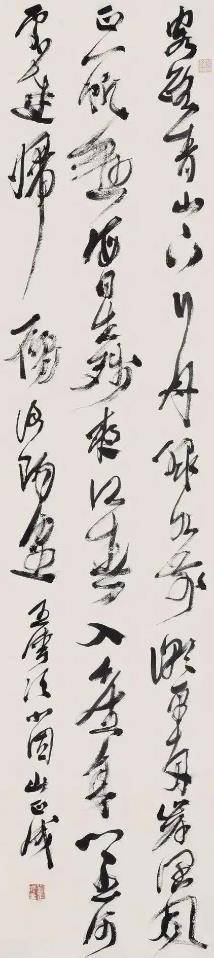 客路青山下行舟綠水前潮平兩岸闊風
正一帆懸海日生殘夜江春入舊年鄉書何
處達歸雁洛陽邊 王灣次北固山正成